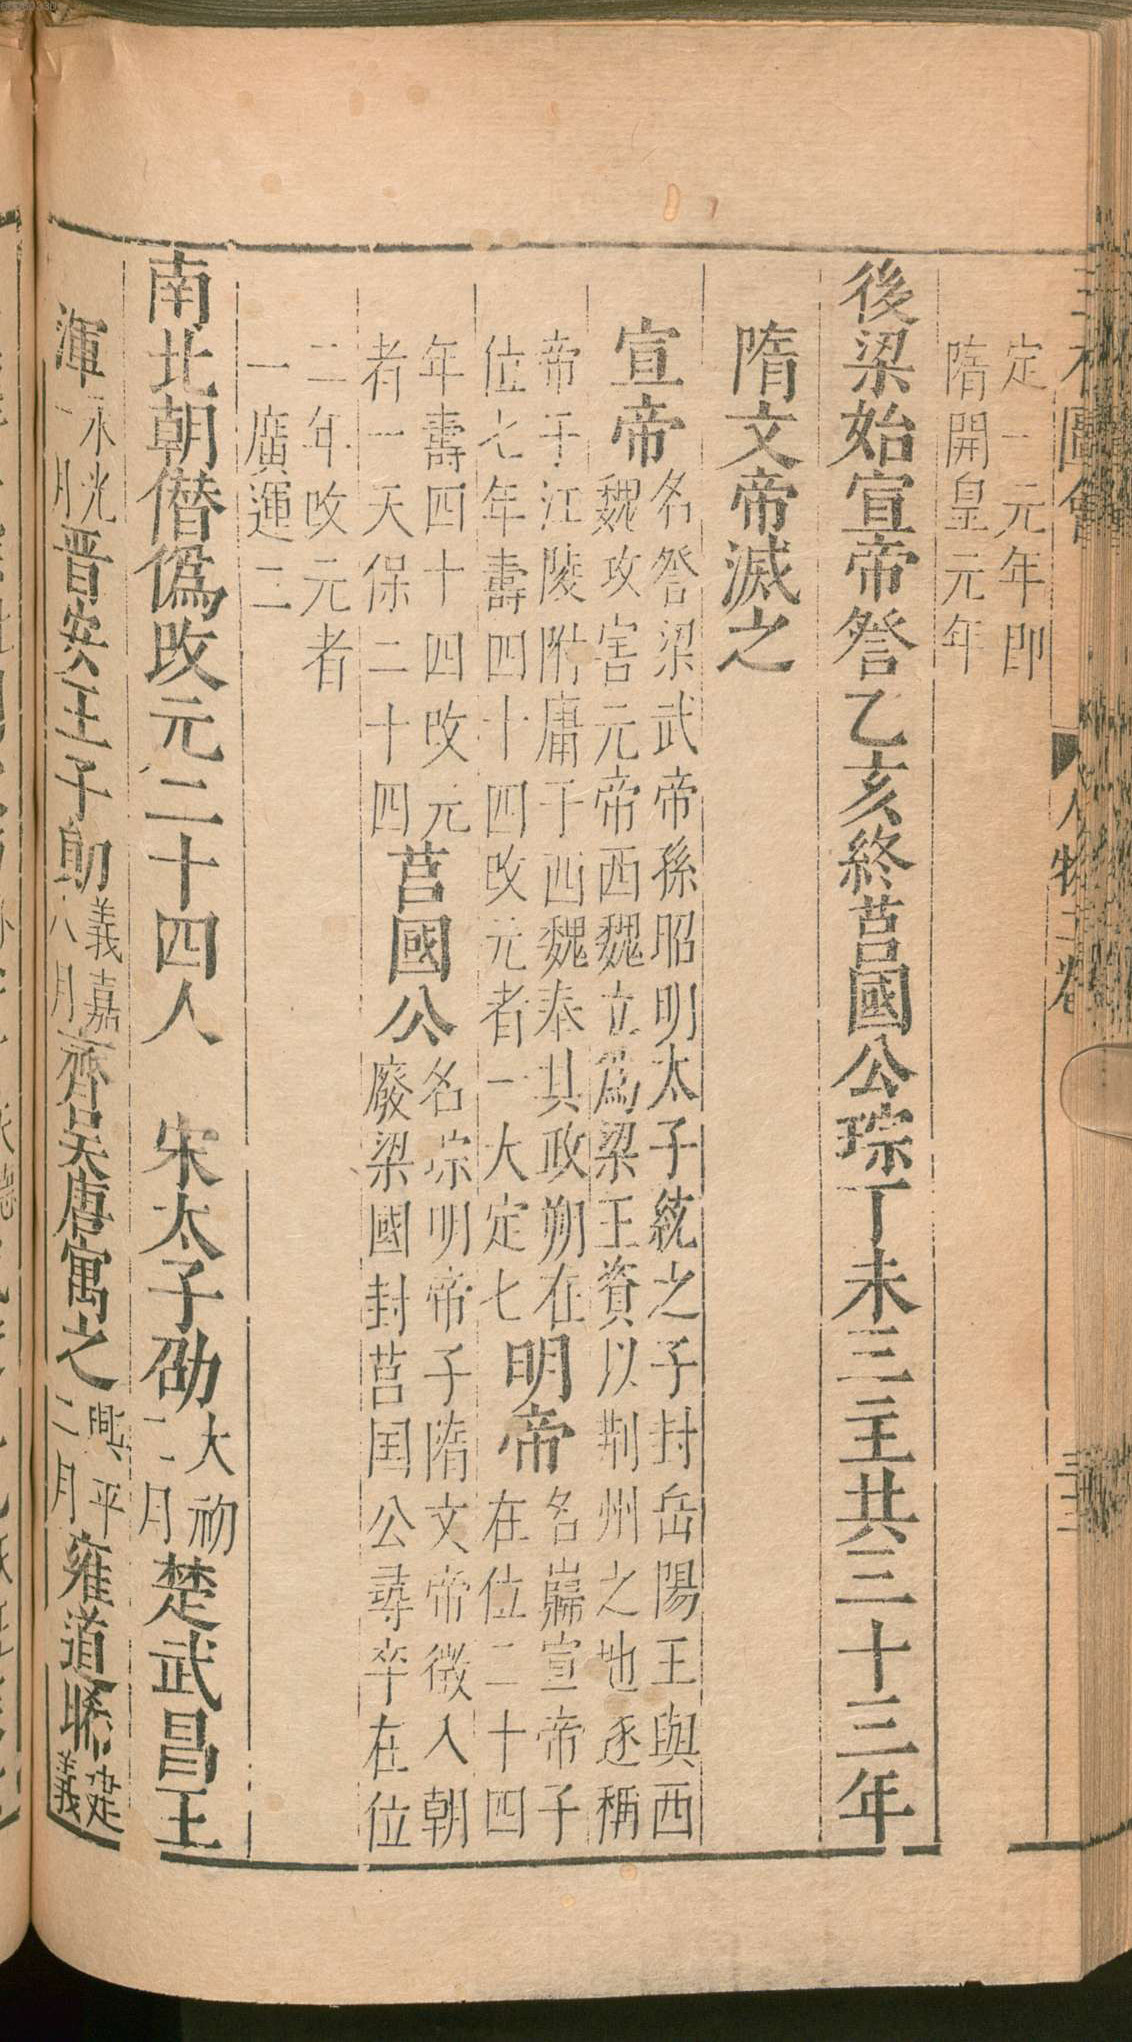 定一元年即
隋開皇元年
後梁始宣帝詧乙亥終莒國公琮丁未三主共三十三年
隋文帝滅之
宣帝
名詧梁武帝孫昭明太子統之子封岳陽王與西
魏攻害元帝西魏立爲梁王資以荆州之地逐稱
帝于江陵附庸于西魏奉其政朔在
位七年壽四十四改元者一大定七
明帝
名巋宣帝子
在位二十四
年壽四十四改元
者一天保二十四
莒國公
名琮明帝子隋文帝徴入朝
廢梁國封莒国公尋卒在位
二年改元者
一廣運二
南北朝僣僞改元二十四人　宋太子劭
大初
二月
楚武昌王
渾
永光
一月
晋安王子勛
義嘉
八月
齊吴唐寓之
興平
二月
雍道晞
建
義